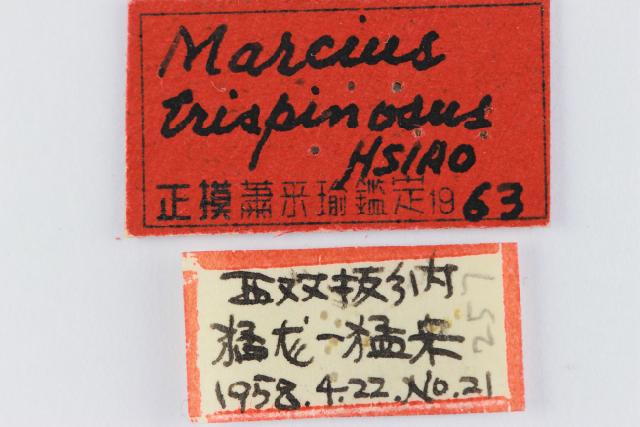 Marcius
trispinosus
HSIAO
正摸蕭采瑜鑑定1963
西双版纳
猛龙-猛宋
1958.4.22.No.21
257